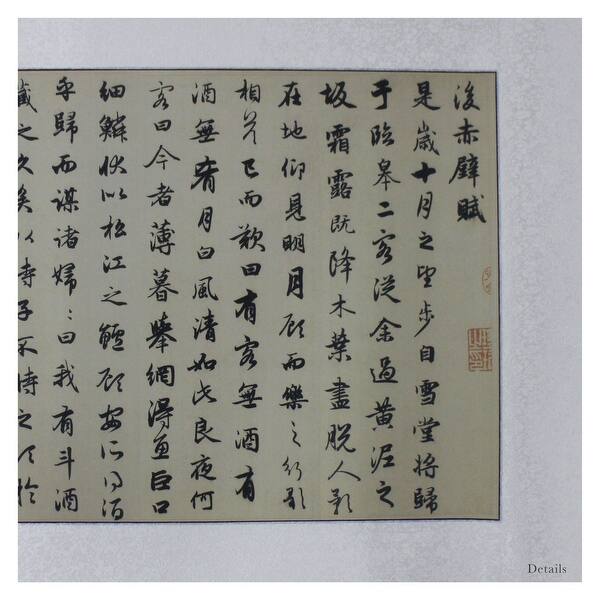 後赤壁賦
是歲十月之望步自雪堂將歸
于臨皋二客從余過黃泥之
坂霜露既降木葉盡脫人影
在地仰見明月顧而樂之行歌
相答已而歎曰有客無酒有
酒無肴月白風清如此良夜何
客曰今者薄暮舉網得魚巨口
細鱗狀似松江之鱸顧安所得酒
乎歸而謀諸婦〻曰我有斗酒
藏之久矣以待子不時之於
Details